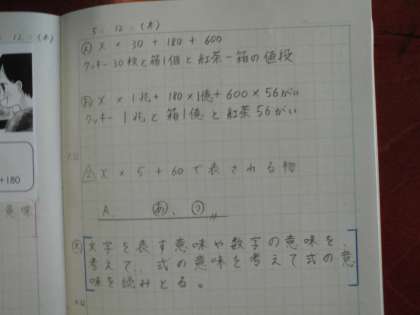 5.12.(木)
あ x × 30 + 180 + 600
クッキー30枚と箱1個と紅茶一箱の値段
x × 1兆 + 180 × 1億 + 600 × 56がい
クッキー1兆と箱1億と紅茶56がい
x × 5 + 60で表される物
A. あ、う
文字を表す意味や数字の意味を
考えて、式の意味を考えて式の意
味を読みとる。
+180
意味